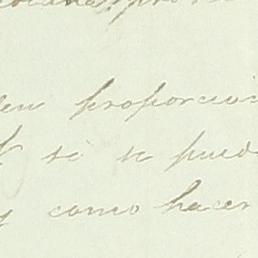 en proporcion
si se puede
y como hacer